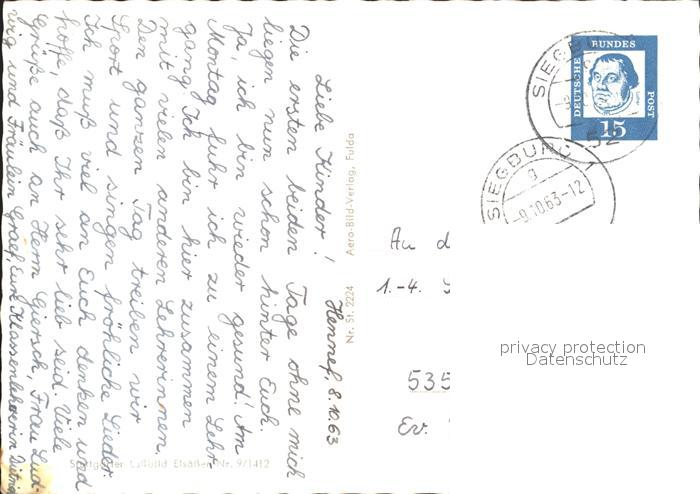 Hennef, 8.10.63
Liebe Kinder!
Die ersten beiden Tage ohne mich
liegen nun schon hinter Euch.
Ja, ich bin wieder gesund! Am
Montag fuhr ich zu einem Lehr
gang. Ich bin hier zusammen
mit vielen anderen Lehrerinnen.
Den ganzen Tag treiben wir
Sport und singen fröhliche Lieder.
Ich muß viel an Euch denken und
hoffe, daß Ihr sehr lieb seid. Viele
Grüße auch an Herrn Giersch, Frau Lud-
wig und Fräulein Graef Eure Klassenlehrerin
Aero-Bild-Verlag, Fulda
Nr. St. 2224
Stuttgarter Luftbild Elsäßer Nr. 9/1412
DEUTSCHE BUNDES POST
15
SIEGBURG
52
SIEGBURG 1
g
-9.10.63-12
An d
1.-4.
535
Ev.
privacy protection
Datenschutz